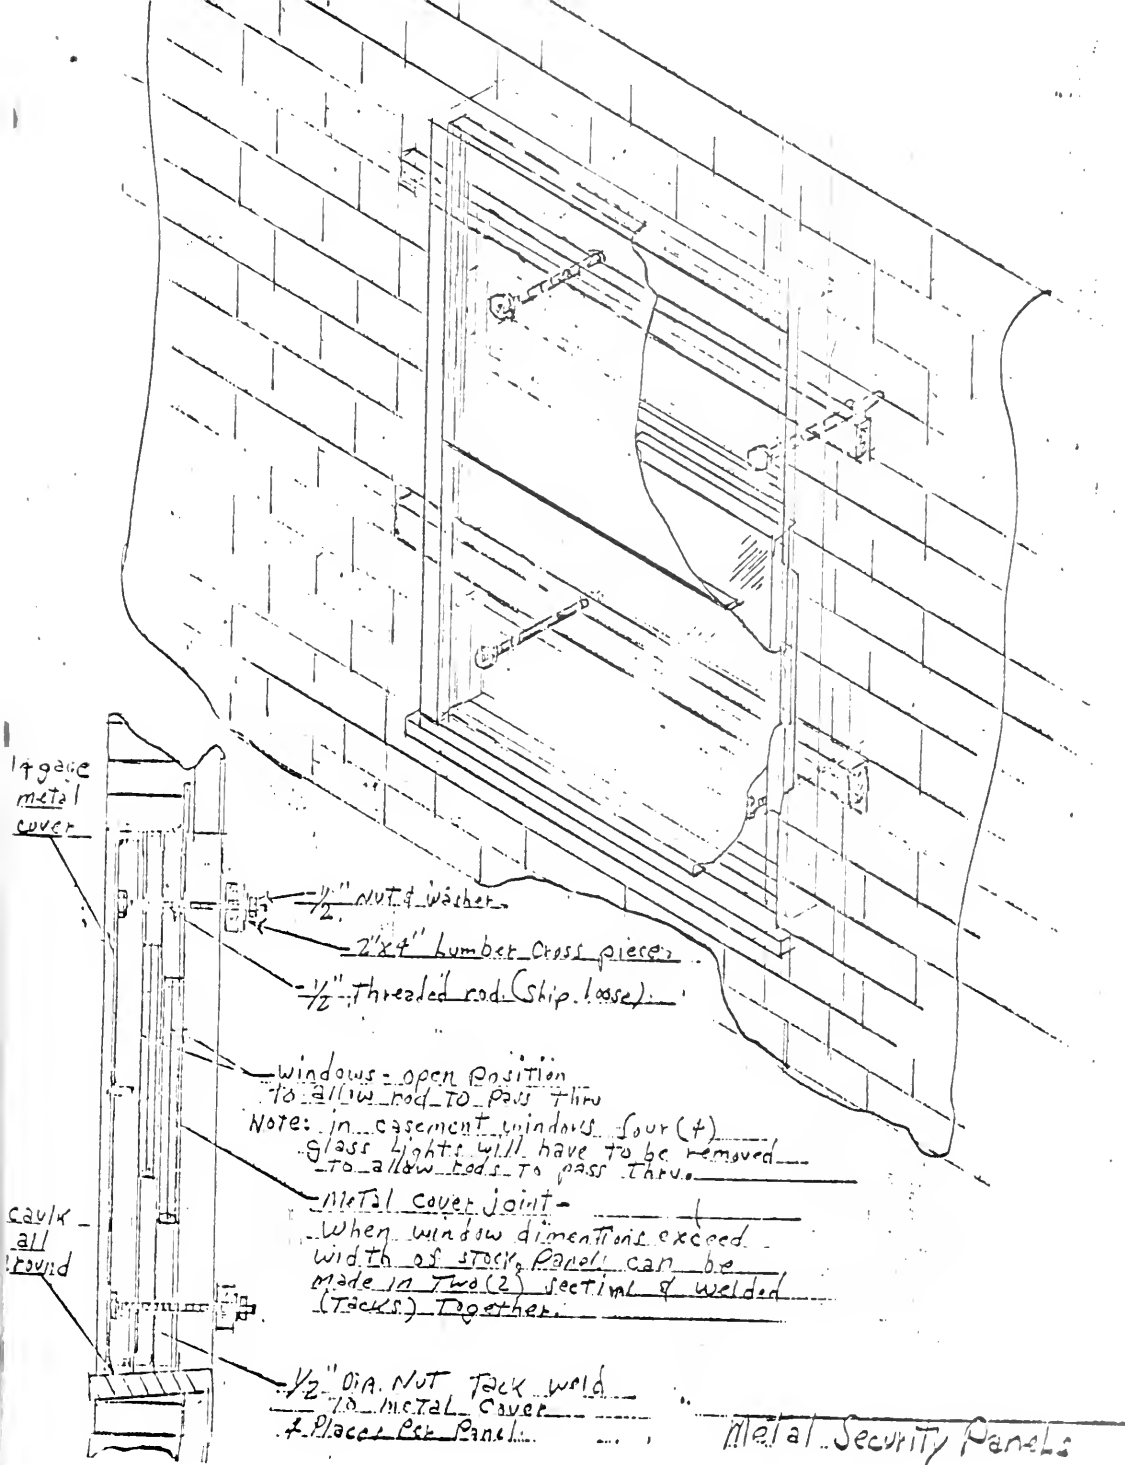 14 gage
metal
cover
1/2" Nut & Washer
2"x4" Lumber Cross pieces
1/2" Threaded rod (Ship loose)
windows - open Position
to allow rod To Pass Thru
Note: in casement windows four (4)
glass Lights will have to be removed
To allow rods To pass Thru.
Metal cover joint -
When window dimentions exceed
width of stock, Panels can be
made in Two (2) sections & welded
(Tacks) Together.
caulk
all
round
1/2" Dia. Nut Tack weld
To metal Cover
4 Places Per Panel.
Metal Security Panels